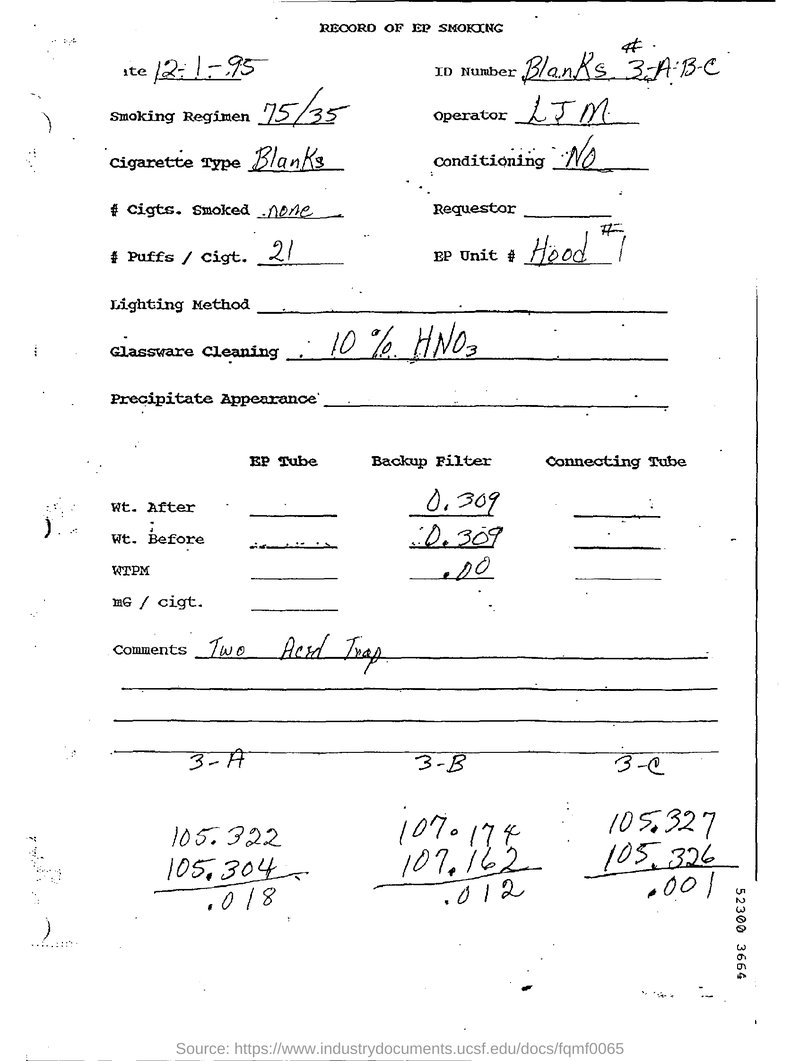 RECORD OF EP SMOKING
ite 12-1-95 ID Number Blanks #3-A-B-C
Smoking Regimen 75/35 Operator LJM
Cigarette Type Blanks Conditioning NO
# Cigts. Smoked none Requestor
# Puffs / Cigt. 21 EP Unit # Hood #1
Lighting Method
Glassware Cleaning 10 % HNO3
Precipitate Appearance
EP Tube Backup Filter Connecting Tube
Wt. After 0.309
Wt. Before 0.309
WTPM .00
mG / cigt.
Comments Two Acid Trap
3-A 3-B 3-C
105.322 107.174 105.327
105.304 107.162 105.326
.018 .012 .001
52300 3664
Source: https://www.industrydocuments.ucsf.edu/docs/fqmf0065